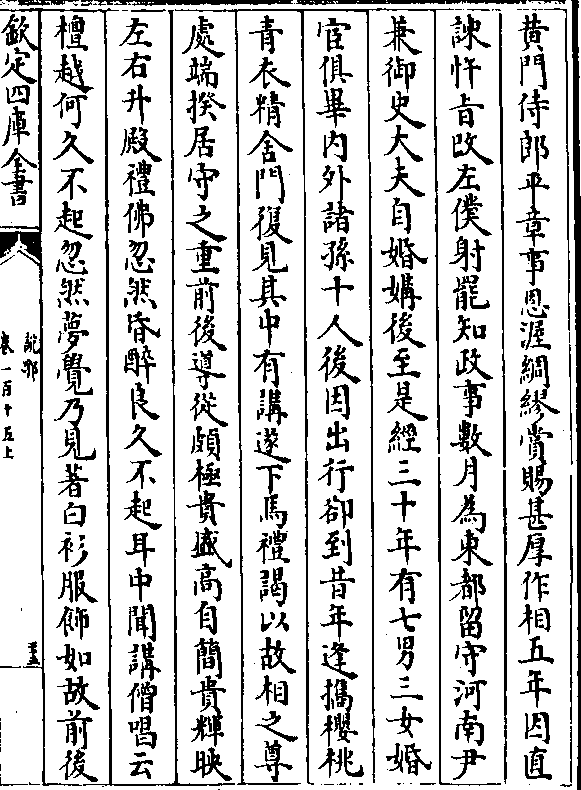 黄門侍郎平章事恩渥綢繆賞賜甚厚作相五年因直
諫忤旨改左僕射罷知政事數月為東都留守河南尹
兼御史大夫自婚媾後至是經三十年有七男三女婚
宦俱畢内外諸孫十人後因出行卻到昔年逢攜櫻桃
青衣精舍門復見其中有講遂下馬禮謁以故相之尊
處端揆居守之重前後導從頗極貴盛高自簡貴輝映
左右升殿禮佛忽然昏醉良久不起耳中聞講僧唱云
檀越何久不起忽然夢覺乃見著白衫服飾如故前後
欽定四庫全書
說郛
卷一百十五上